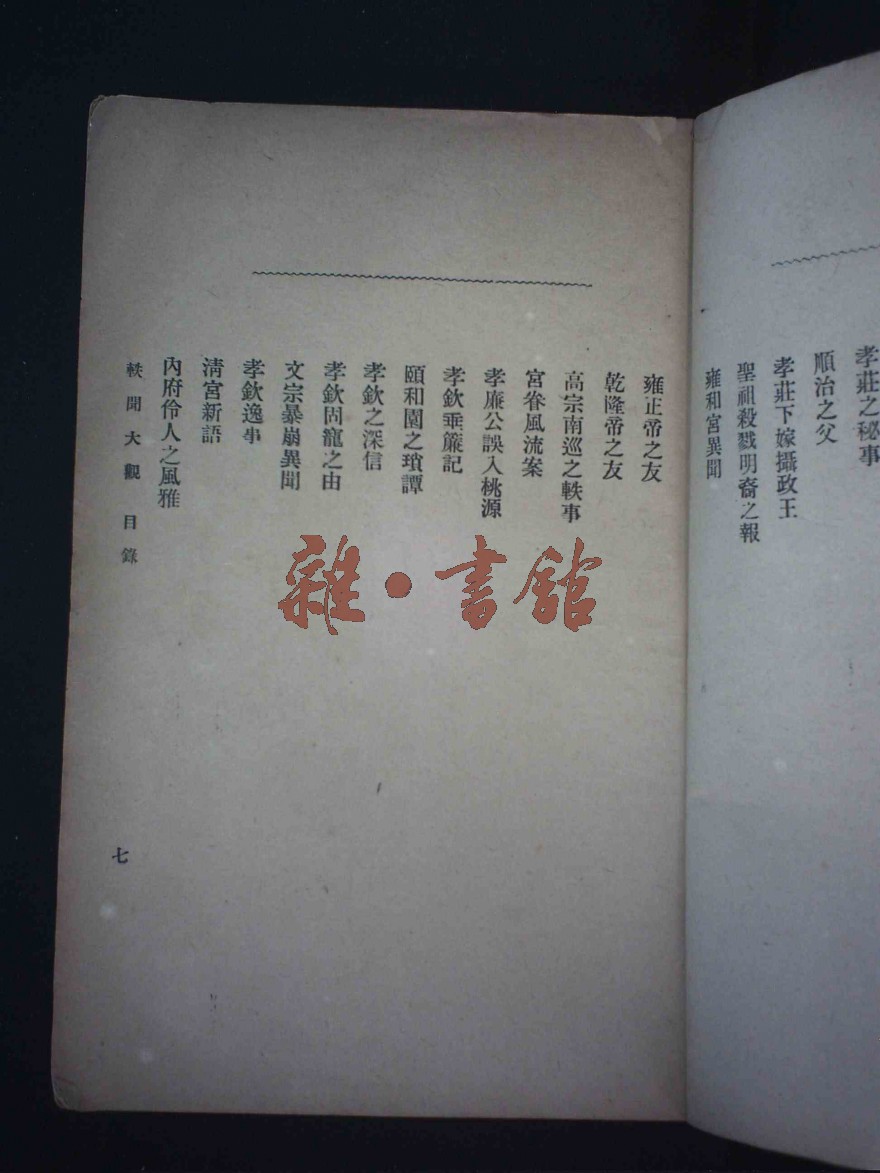 孝莊之秘事
順治之父
孝莊下嫁攝政王
聖祖殺戮明裔之報
雍和宮異聞
雍正帝之友
乾隆帝之友
高宗南巡之軼事
宮眷風流案
孝廉公誤入桃源
孝欽垂簾記
頤和園之瑣譚
孝欽之深信
孝欽固寵之由
文宗暴崩異聞
孝欽逸事
清宮新語
內府伶人之風雅
軼聞大觀 目錄
七
雜·書館